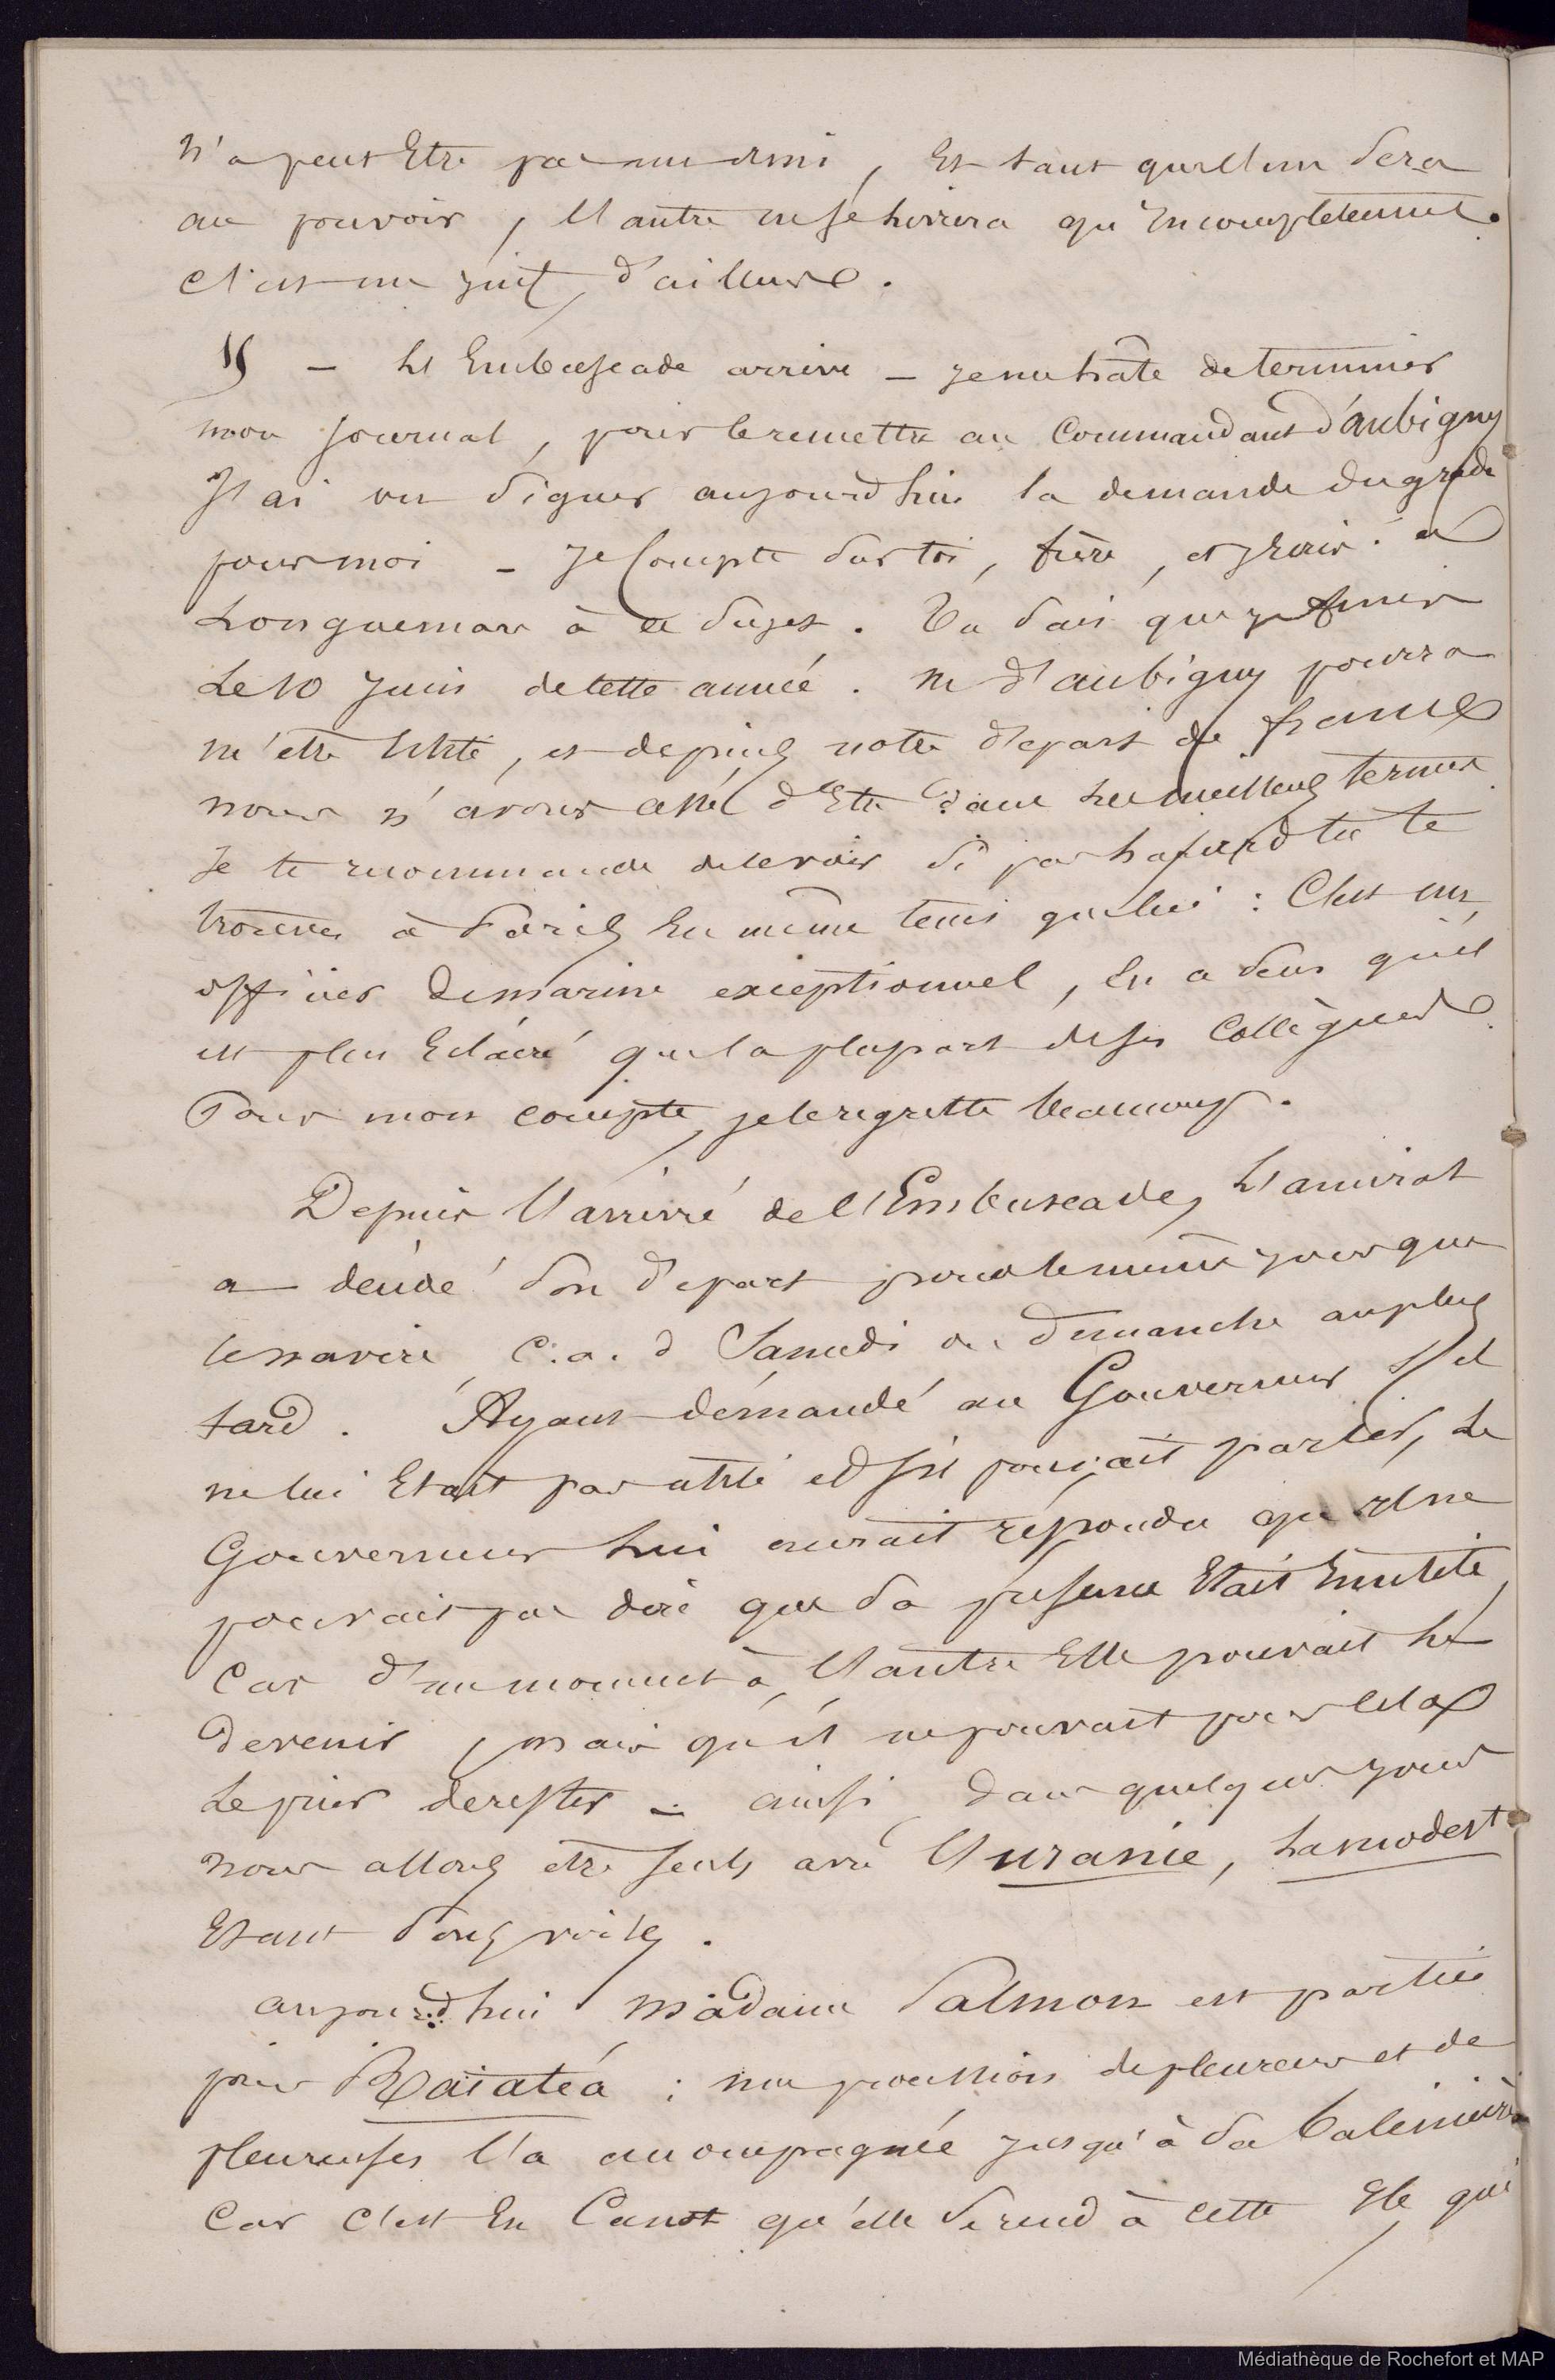 n'a peut Etre pas un ami, Et tant que l'un sera
au pouvoir, l'autre ne se livrera qu'Incomplètement.
C'est un juif, d'ailleurs.
— L'Embuscade arrive — je me hâte de terminer
mon journal, pour le remettre au Commandant d'aubigny
J'ai vu signer aujourd'hui la demande du grade
pour moi — Je Compte sur toi, frère, et j'écris à
Longuemar à ce sujet. Tu sais que je finis
Le 10 juin de cette année. M d'aubigny pourra
m'être Utile, et depuis notre départ de france
nous n'avons cessé d'Etre dans les meilleurs termes
Je te recommande de le voir si par hasard tu te
trouves à Paris En même tems que lui : C'est un
officier de marine exceptionnel, En a sens qu'il
est plus Eclairé que la plupart de ses Collègues.
Pour mon compte, je le regrette beaucoup.
Depuis l'arrivé de l'Embuscade, L'amiral
a décidé son départ probablement pour que
le navire, C.a.d Samedi ou dimanche au plus
tard. Ayant demandé au Gouverneur s'il
ne lui Etait pas utile et s'il pouvait partir, Le
Gouverneur Lui aurait répondu qu'il ne
pouvait pas dire que sa présence Etait Inutile,
Car d'un moment à l'autre Elle pouvait Le
devenir, mais qu'il ne pouvait pour cela
Le prier de rester — ainsi dans quelques jours
nous allons être seuls avec l'uranie, La modest
Etant sous voiles.
aujourd'hui madame Salmon est partie
pour Raïatéa : une procession de pleureurs et de
pleureuses l'a accompagnée jusqu'à sa baleinière
Car C'est En Canot qu'elle se rend à cette Ile qui